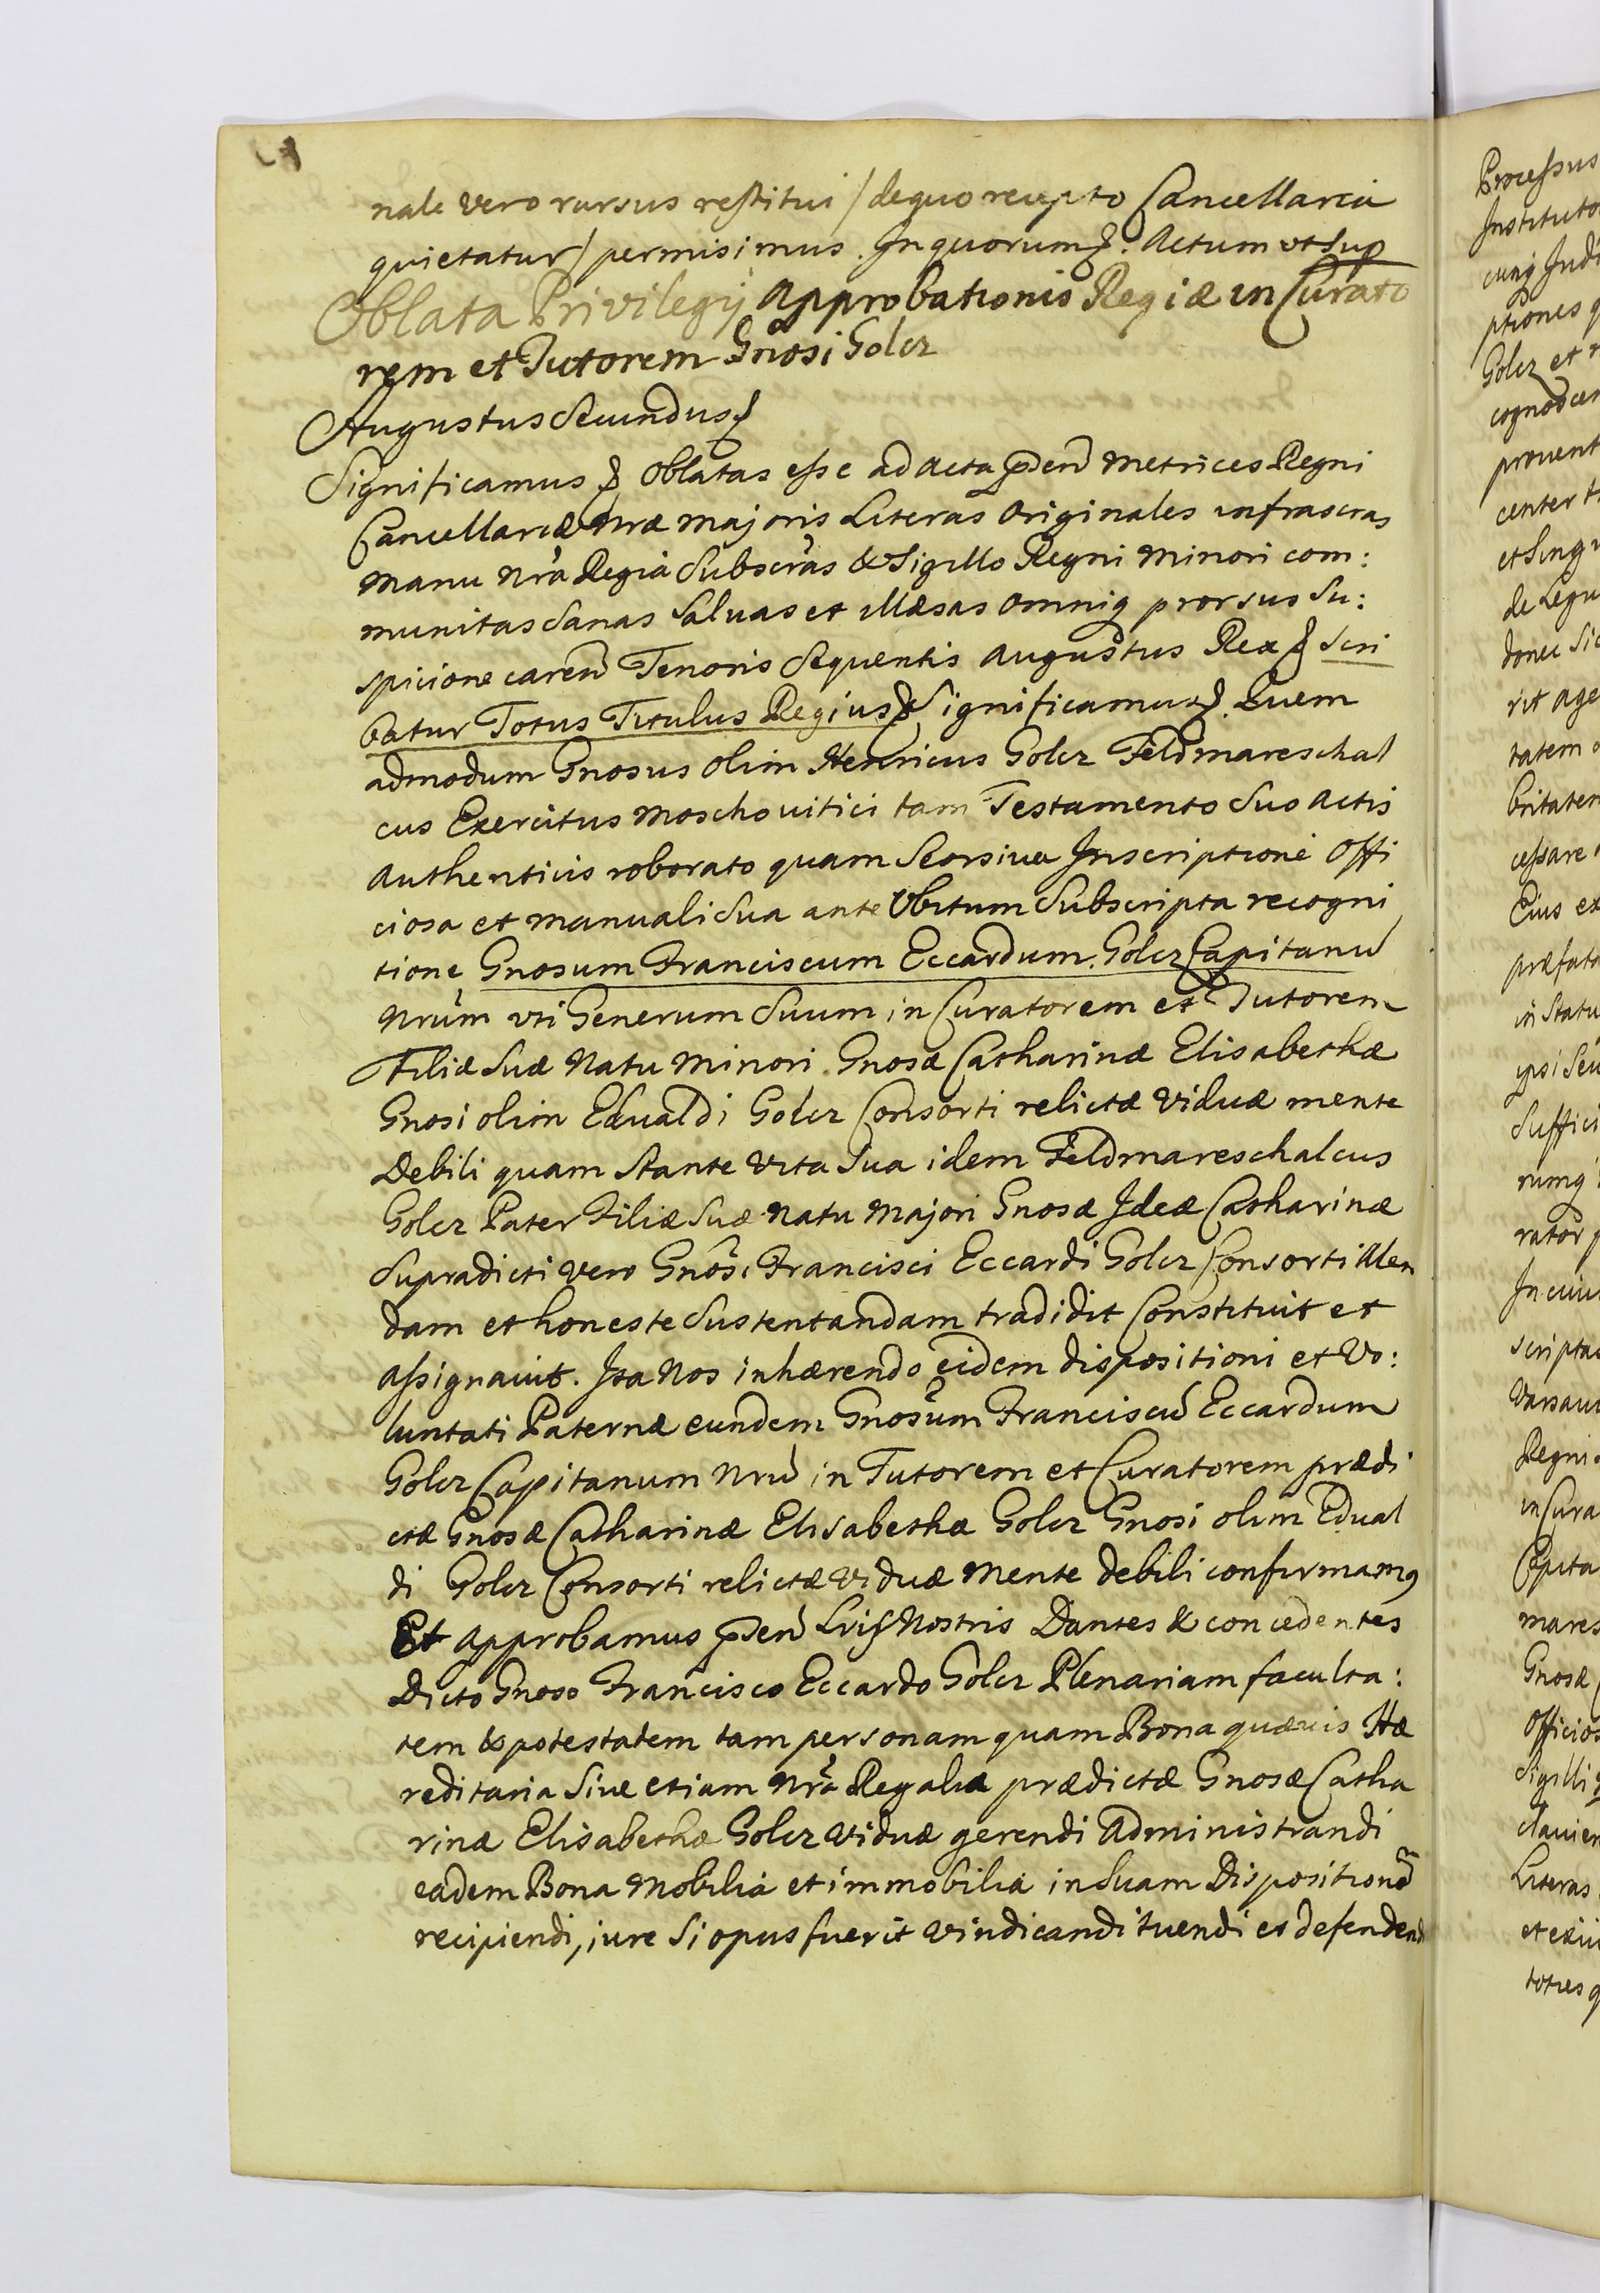 nale vero rursus restitui / de quo recepto Cancellaria
quietatur / permisimus. In quorum &. Actum ut sup
Oblata Privilegij Approbationis Regiæ in Curato
rem et Tutorem Gnosi Golcz
Augustus Secundus &
Significamus & Oblatas esse ad Acta pden Metrices Regni
Cancellariæ Nræ majoris Literas Originales infrascras
manu Nra Regia Subscras & Sigillo Regni Minori com:
munitas Sanas Salvas et illæsas omniq prorsus Su:
spicione caren Tenoris Sequentis Augustus Rex & Scri
batur Totus Titulus Regius & Significamus &. Quem
admodum Gnosus olim Henricus Golcz Feldmareschal
cus Exercitus Moschovitici tam Testamento Suo Actis
Authenticis roborato quam Seorsiva Inscriptione Offi
ciosa et manuali Sua ante Obitum Subscripta recogni
tione Gnosum Franciscum Eccardum Golcz Capitanu
Nrum uti Generum Suum in Curatorem et Tutorem
Filiæ Suæ Natu Minori Gnosæ Catharinæ Elisabethæ
Gnosi olim Edualdi Golcz Consorti relictæ Viduæ mente
Debili quam Stante Vita Sua idem Feldmareschalcus
Golcz Pater Filiæ Suæ Natu Majori Gnosæ Ideæ Catharinæ
Supradicti vero Gnosi Francisci Eccardi Golcz Consorti Alen
dam et honeste Sustentandam tradidit Constituit et
assignavit. Ita Nos inhærendo eidem dispositioni et Vo:
luntati Paternæ eundem Gnosum Franciscu Eccardum
Golcz Capitanum Nru in Tutorem et Curatorem prædi
ctæ Gnosæ Catharinæ Elisabethæ Golcz Gnosi olim Edual
di Golcz Consorti relictæ Viduæ Mente debili confirmamq
Et Approbamus pden Lris Nostris Dantes & concedentes
Dicto Gnoso Francisco Eccardo Golcz Plenariam faculta:
tem & potestatem tam personam quam Bona quævis Hæ
reditaria Sive etiam Nra Regalia prædictæ Gnosæ Catha
rinæ Elisabethæ Golcz Viduæ gerendi Administrandi
eadem Bona Mobilia et immobilia in Suam Dispositione
recipiendi, iure Si opus fuerit Vindicandi tuendi et defendend
Processus
Instituto
cunq Judi
ptiones q
Golcz et
cognoscen
provent
center t
et Singu
de Legu
donec Sic
rit age
tatem
britatem
cessare
Eius ex
præfata
in Statu
ipsi Seu
Suffici
rumq
rator p
In cuius
scriptas
Varsavi
Regni
in Cura
Capita
mares
Gnosæ
Officios
Sigilli
clavien
Literas
et exi
toties q